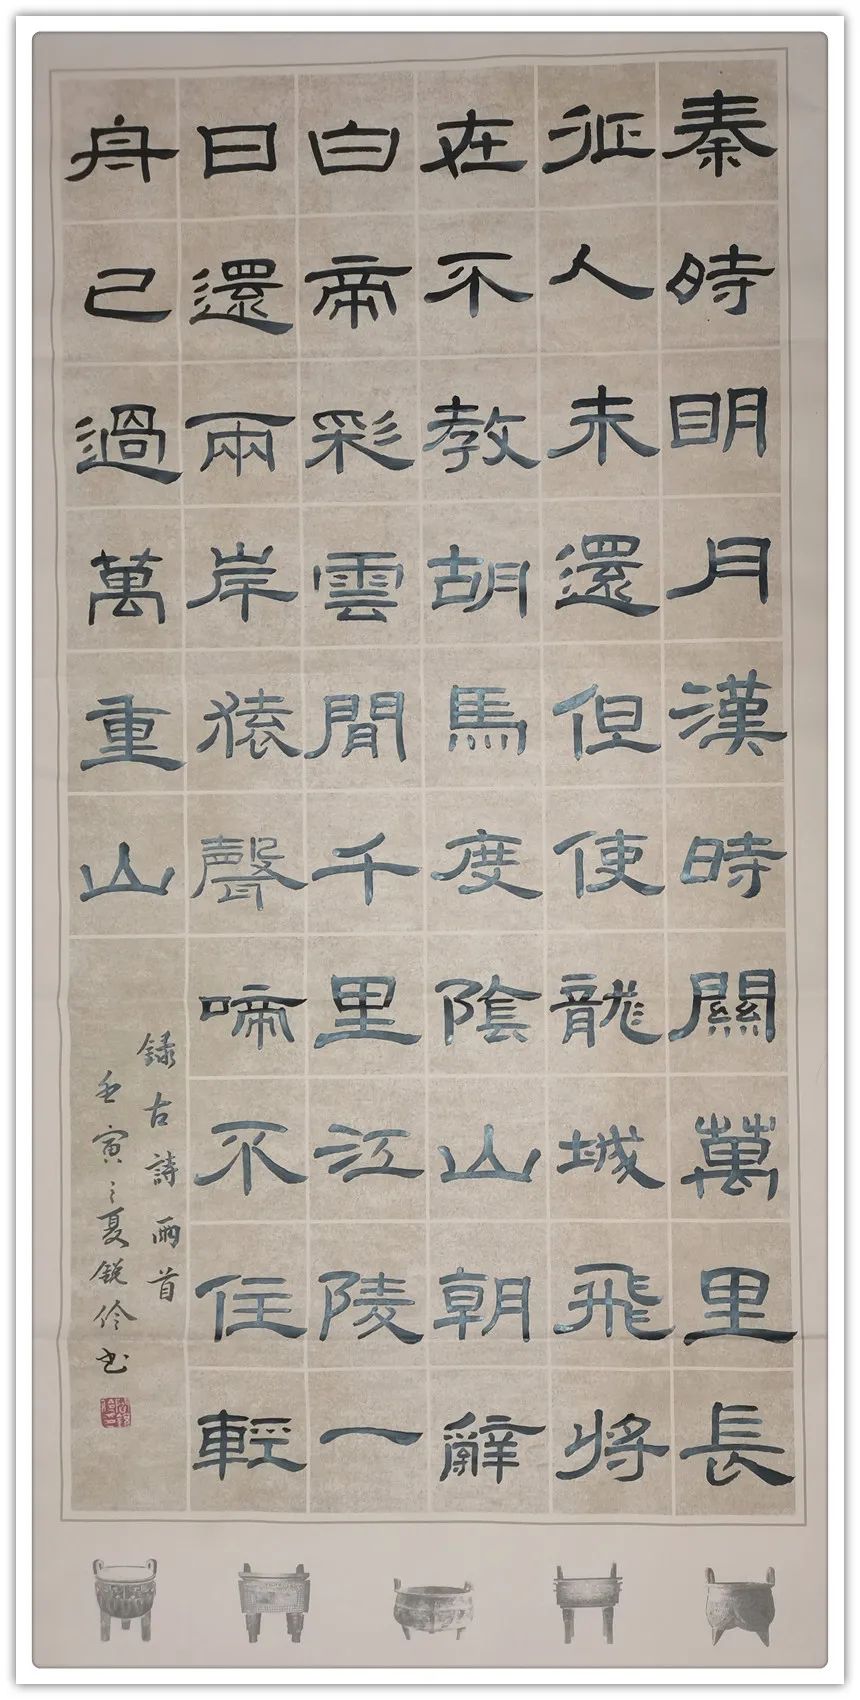 秦時明月漢時關萬里長
征人未還但使龍城飛將
在不教胡馬度陰山朝辭
白帝彩雲間千里江陵一
日還兩岸猿聲啼不住輕
舟已過萬重山
録古詩兩首
壬寅之夏鋭伶书